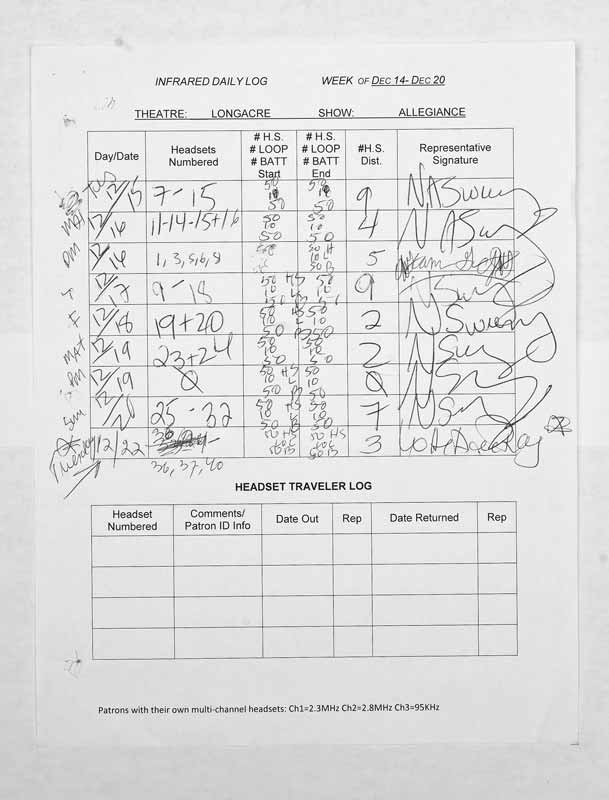 INFRARED DAILY LOG WEEK OF DEC 14- DEC 20
THEATRE: LONGACRE SHOW: ALLEGIANCE
Day/Date Headsets Numbered # H.S. # LOOP # BATT Start # H.S. # LOOP # BATT End #H.S. Dist. Representative Signature
Tues 12/15 7-15 50 10 50 50 10 50 9
MAT 12/16 11-14-15+16 50 10 50 50 10 50 4
PM 12/16 1, 3, 5, 6, 8 50 H 10 L 50 B 5
T 12/17 9-18 50 HS 10 L 50 10 9
F 12/18 19+20 50 HS 10 L 50 B 50 10 50 2
MAT 12/19 23+24 50 10 50 50 10 50 2
PM 12/19 Ø 50 HS 10 L 50 B 50 10 50 Ø
Sun 12/20 25-32 50 HS 10 L 50 B 50 10 50 7
Tuesday 12/22 36 50 HS 10 L 50 B 50 HS 10 L 50 B 3
36, 37, 40
HEADSET TRAVELER LOG
Headset Numbered Comments/ Patron ID Info Date Out Rep Date Returned Rep
Patrons with their own multi-channel headsets: Ch1=2.3MHz Ch2=2.8MHz Ch3=95KHz